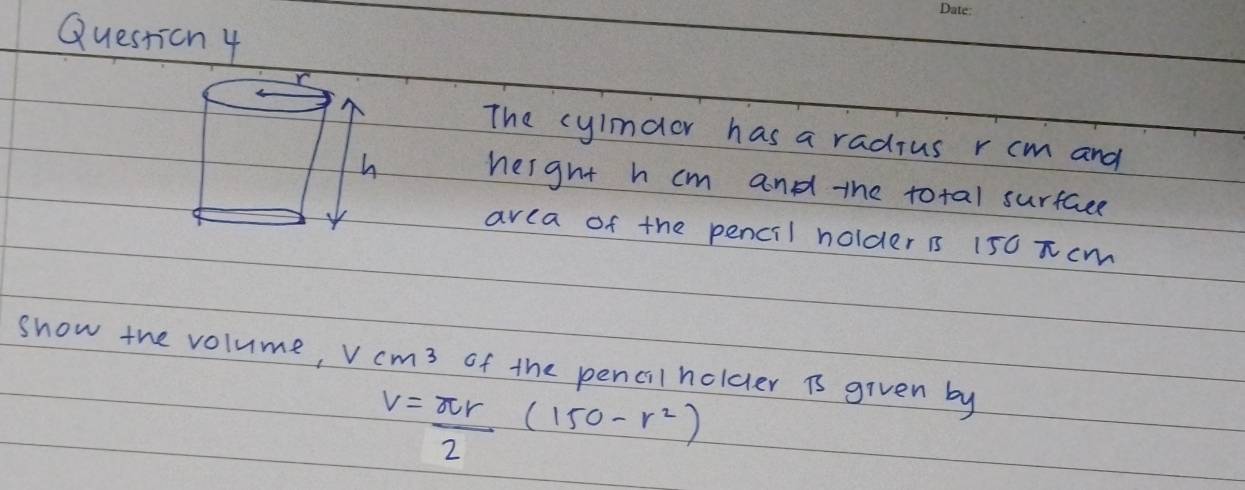 Date:
Question 4
r
h
The cylinder has a radius r cm and
height h cm and the total surface
area of the pencil holder is 150 π cm
show the volume, V cm³ of the pencil holder is given by
V = πr/2 (150 - r²)